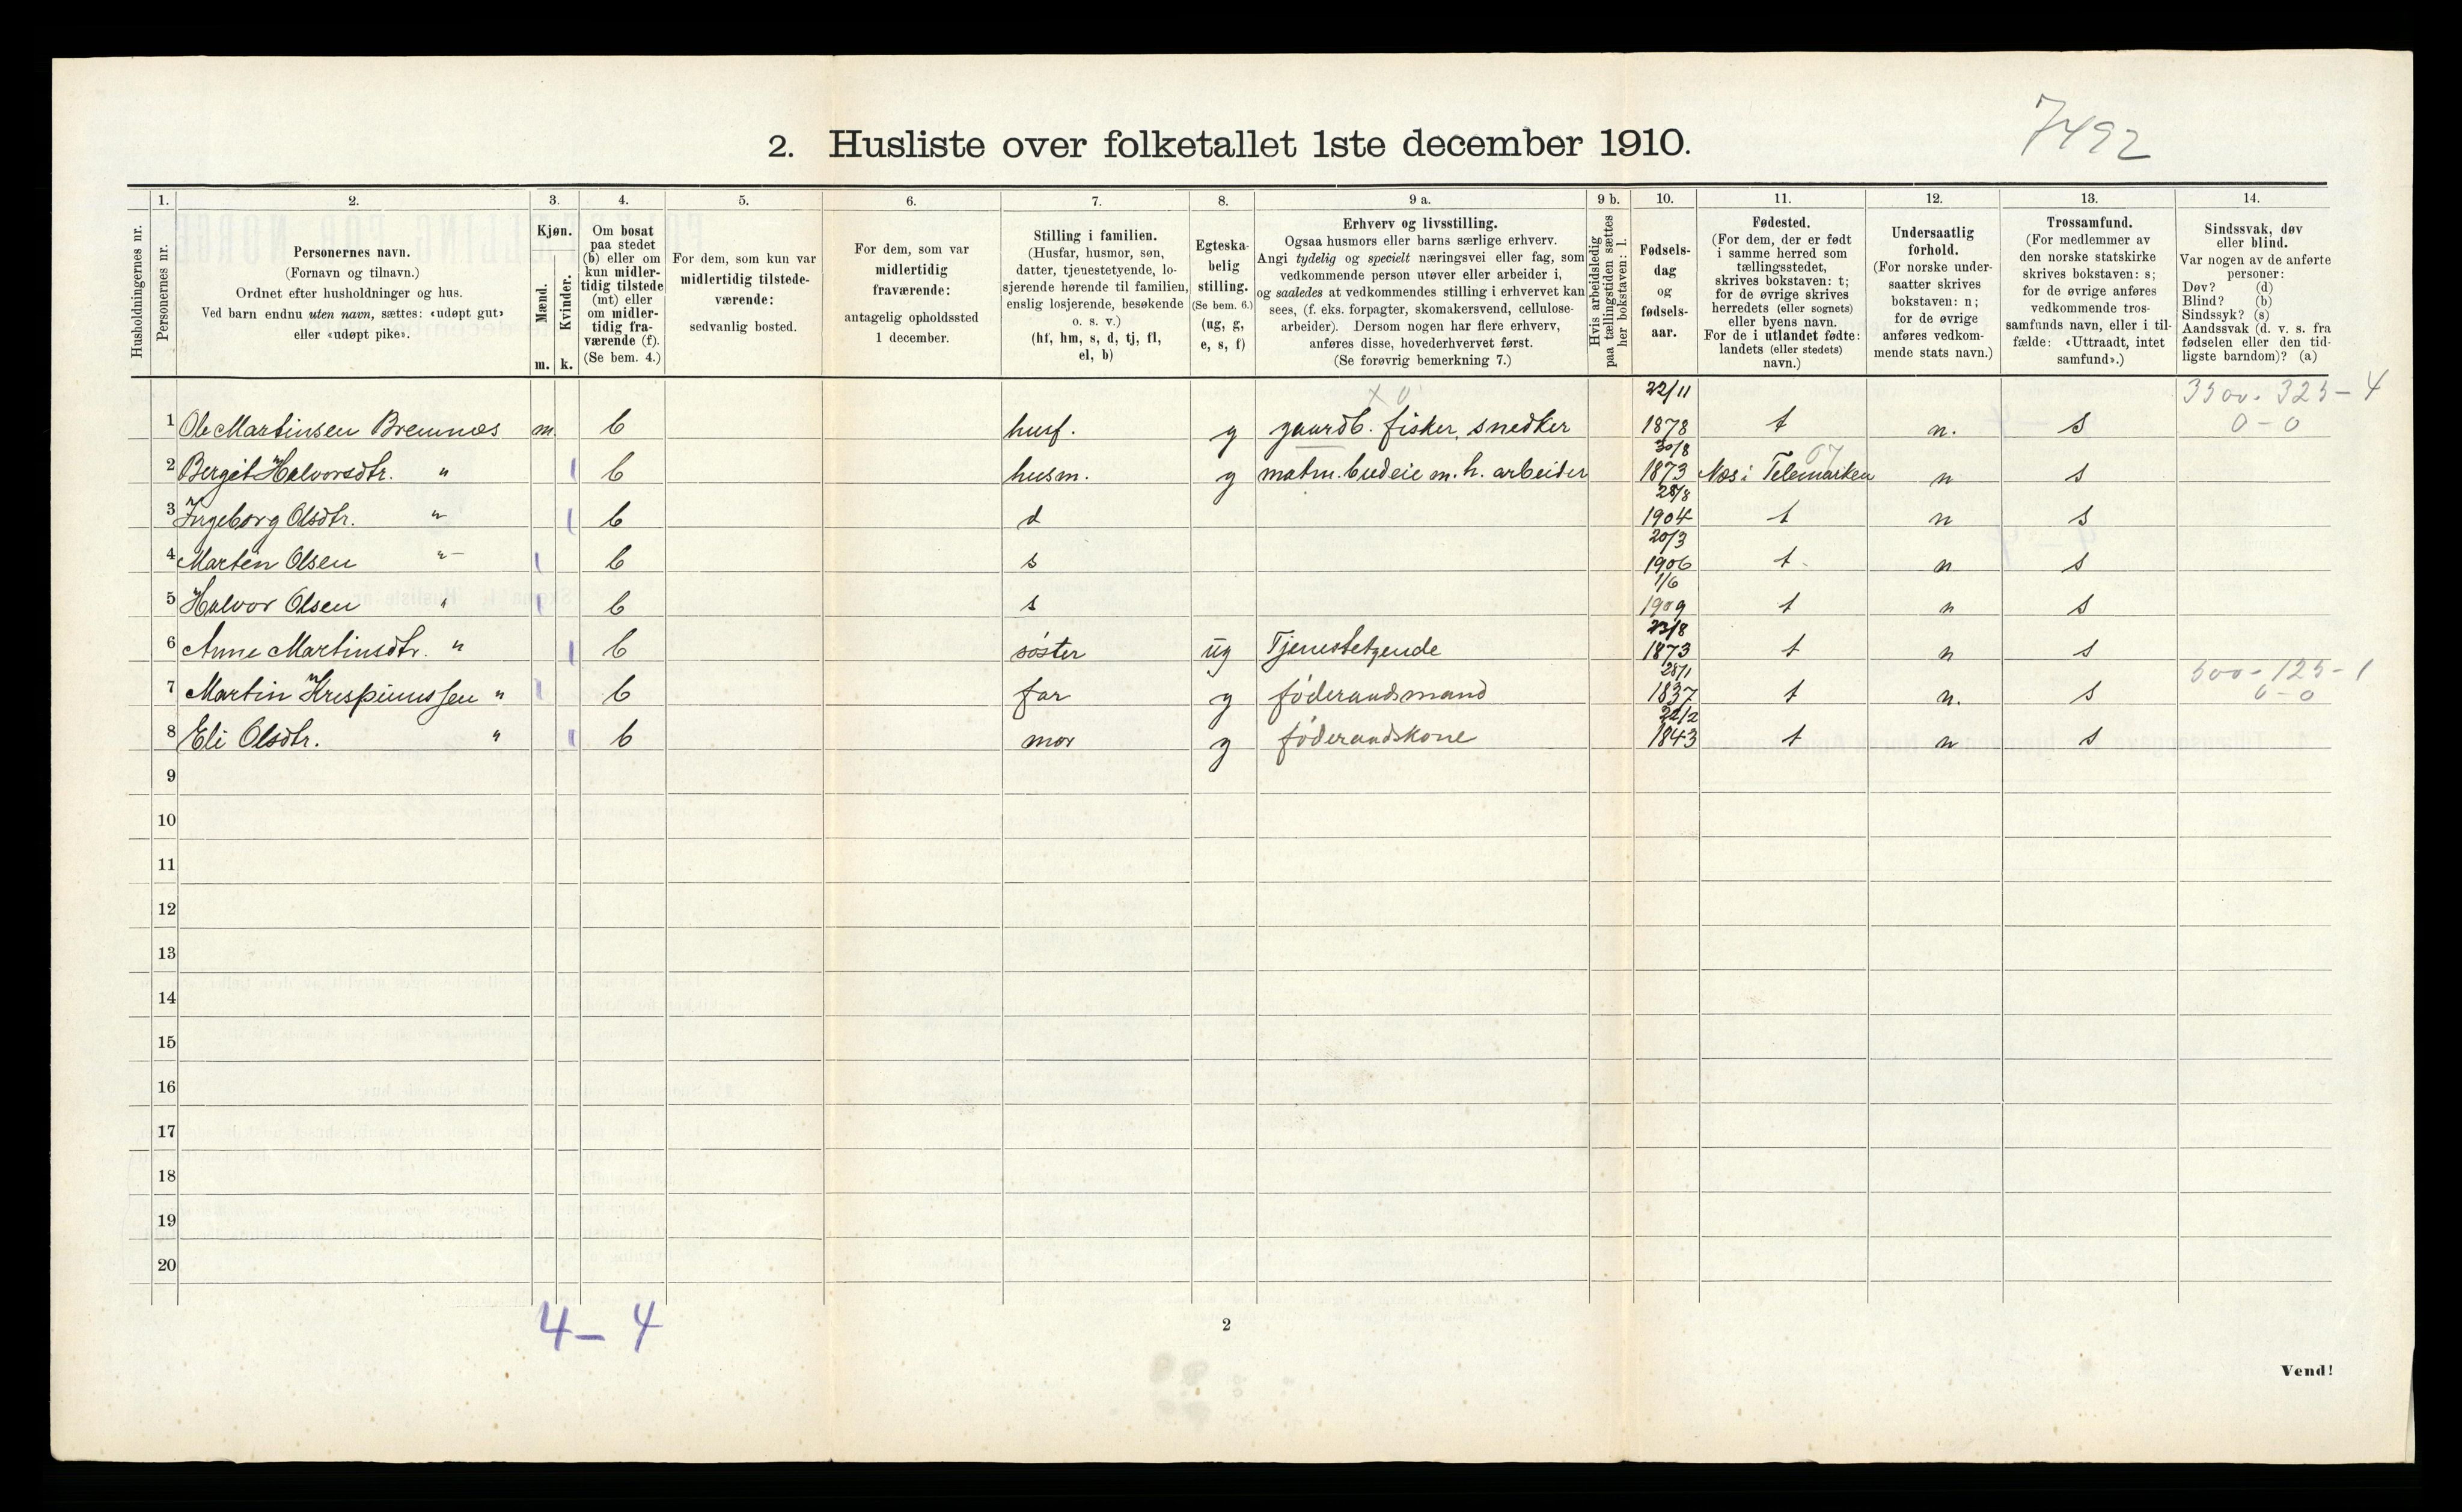 7492
2. Husliste over folketallet 1ste december 1910.
Husholdningernes nr.
1.
Personernes nr.
2.
Personernes navn.
(Fornavn og tilnavn.)
Ordnet efter husholdninger og hus.
Ved barn endnu uten navn, sættes: «udøpt gut»
eller «udøpt pike».
3.
Kjøn.
Mænd.
Kvinder.
m. k.
4.
Om bosat
paa stedet
(b) eller om
kun midler-
tidig tilstede
(mt) eller
om midler-
tidig fra-
værende (f).
(Se bem. 4.)
5.
For dem, som kun var
midlertidig tilstede-
værende:
sedvanlig bosted.
6.
For dem, som var
midlertidig
fraværende:
antagelig opholdssted
1 december.
7.
Stilling i familien.
(Husfar, husmor, søn,
datter, tjenestetyende, lo-
sjerende hørende til familien,
enslig losjerende, besøkende
o. s. v.)
(hf, hm, s, d, tj, fl,
el, b)
8.
Egteska-
belig
stilling.
(Se bem. 6.)
(ug, g,
e, s, f)
9 a.
Erhverv og livsstilling.
Ogsaa husmors eller barns særlige erhverv.
Angi tydelig og specielt næringsvei eller fag, som
vedkommende person utøver eller arbeider i,
og saaledes at vedkommendes stilling i erhvervet kan
sees, (f. eks. forpagter, skomakersvend, cellulose-
arbeider). Dersom nogen har flere erhverv,
anføres disse, hovederhvervet først.
(Se forøvrig bemerkning 7.)
9 b.
Hvis arbeidsledig
paa tællingstiden sættes
her bokstaven: l.
10.
Fødsels-
dag
og
fødsels-
aar.
11.
Fødested.
(For dem, der er født
i samme herred som
tællingsstedet,
skrives bokstaven: t;
for de øvrige skrives
herredets (eller sognets)
eller byens navn.
For de i utlandet fødte:
landets (eller stedets)
navn.)
12.
Undersaatlig
forhold.
(For norske under-
saatter skrives
bokstaven: n;
for de øvrige
anføres vedkom-
mende stats navn.)
13.
Trossamfund.
(For medlemmer av
den norske statskirke
skrives bokstaven: s;
for de øvrige anføres
vedkommende tros-
samfunds navn, eller i til-
fælde: «Uttraadt, intet
samfund».)
14.
Sindssvak, døv
eller blind.
Var nogen av de anførte
personer:
Døv? (d)
Blind? (b)
Sindssyk? (s)
Aandssvak (d. v. s. fra
fødselen eller den tid-
ligste barndom)? (a)
x 0 22/11 3500-325-4
1 Ole Martinsen Bremnes m. b husf. g gaardb. fisker, snedker 1878 t n. s 0-0
30/8 07
2 Bergit Halvorsdtr. " 1 b husm. g matm. budeie m. h. arbeider 1873 Næs i Telemarken n s
28/8
3 Ingeborg Olsdtr. " 1 b d 1904 t n s
20/3
4 Marten Olsen " 1 b s 1906 t n s
1/6
5 Halvor Olsen " 1 b s 1909 t n s
23/8
6 Anne Martinsdtr. " 1 b søster ug Tjenestetyende 1873 t n s
28/1 500-125-1
7 Martin Krespinussen " 1 b far g føderaadsmand 1837 t n. s 0-0
8 Eli Olsdtr. " 1 b mor g føderaadskone 1843 t n s
9
10
11
12
13
14
15
16
17
18
19
20
4-4
2
Vend!